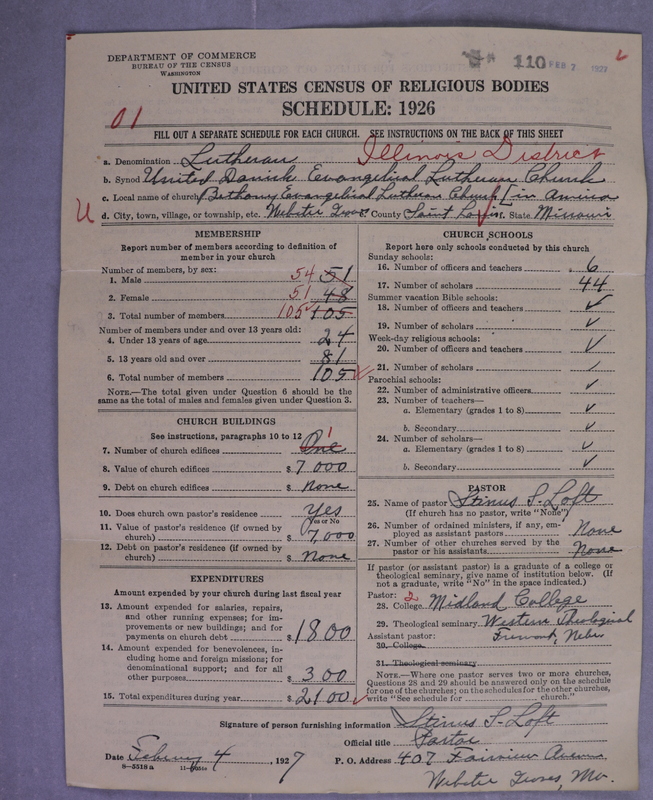 DEPARTMENT OF COMMERCE
BUREAU OF THE CENSUS
WASHINGTON
110 FEB 7 1927
UNITED STATES CENSUS OF RELIGIOUS BODIES
SCHEDULE: 1926
01
FILL OUT A SEPARATE SCHEDULE FOR EACH CHURCH. SEE INSTRUCTIONS ON THE BACK OF THIS SHEET
a. Denomination Lutheran Illinois District
b. Synod United Danish Evangelical Lutheran Church
c. Local name of church Bethany Evangelical Lutheran Church [in America
U d. City, town, village, or township, etc. Webster Groves County Saint Louis State Missouri
MEMBERSHIP
Report number of members according to definition of
member in your church
Number of members, by sex:
1. Male 54 51
2. Female 51 48
3. Total number of members 105 105
Number of members under and over 13 years old:
4. Under 13 years of age 24
5. 13 years old and over 81
6. Total number of members 105
NOTE.—The total given under Question 6 should be the
same as the total of males and females given under Question 3.
CHURCH BUILDINGS
See instructions, paragraphs 10 to 12
7. Number of church edifices One 1
8. Value of church edifices $ 7000
9. Debt on church edifices $ None
10. Does church own pastor's residence? Yes
Yes or No
11. Value of pastor's residence (if owned by
church) $ 7,000
12. Debt on pastor's residence (if owned by
church) $ None
EXPENDITURES
Amount expended by your church during last fiscal year
13. Amount expended for salaries, repairs,
and other running expenses; for im-
provements or new buildings; and for
payments on church debt $ 1800
14. Amount expended for benevolences, in-
cluding home and foreign missions; for
denominational support; and for all
other purposes $ 300
15. Total expenditures during year $ 2100
CHURCH SCHOOLS
Report here only schools conducted by this church
Sunday schools:
16. Number of officers and teachers 6
17. Number of scholars 44
Summer vacation Bible schools:
18. Number of officers and teachers ✓
19. Number of scholars ✓
Week-day religious schools:
20. Number of officers and teachers ✓
21. Number of scholars ✓
Parochial schools:
22. Number of administrative officers ✓
23. Number of teachers—
a. Elementary (grades 1 to 8) ✓
b. Secondary ✓
24. Number of scholars—
a. Elementary (grades 1 to 8) ✓
b. Secondary ✓
PASTOR
25. Name of pastor Stinus S. Loft
(If church has no pastor, write "None")
26. Number of ordained ministers, if any, em-
ployed as assistant pastors None
27. Number of other churches served by the
pastor or his assistants None
If pastor (or assistant pastor) is a graduate of a college or
theological seminary, give name of institution below. (If
not a graduate, write "No" in the space indicated.)
Pastor: 2
28. College Midland College
29. Theological seminary Western Theological
Assistant pastor: Fremont, Nebr
30. College
31. Theological seminary
NOTE.—Where one pastor serves two or more churches,
Questions 28 and 29 should be answered only on the schedule
for one of the churches; on the schedules for the other churches,
write "See schedule for church."
Signature of person furnishing information Stinus S. Loft
Official title Pastor
Date 4, 1927 P. O. Address 407 Fairview Avenue
8—5518a
Webster Groves, Mo.